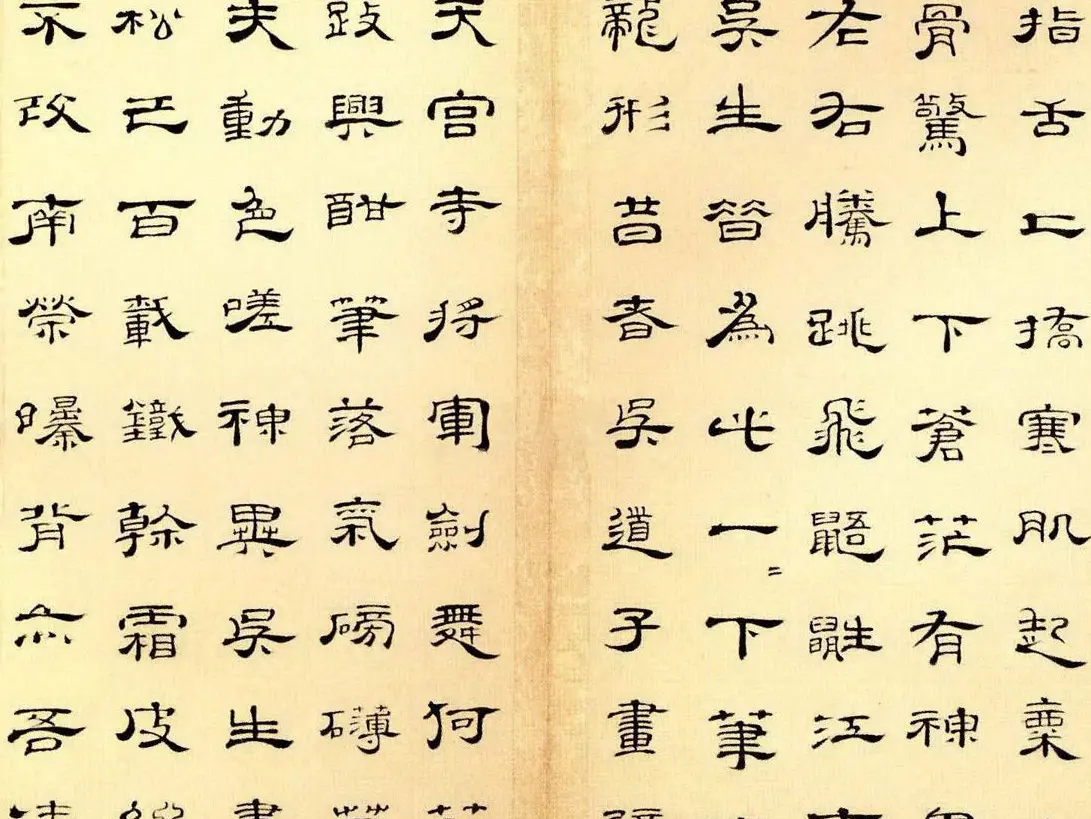 指舌上撟寒肌起粟
骨驚上下蒼茫有神
左右騰跳飛鼯鼪江
吳生皆為此一〻下筆
龍形昔者吳道子畫
天宮寺將軍劍舞何
興酣筆落氣磅礴
夫動色嗟神異吳生
松已百載鐵幹霜皮
不改南榮曝背亦吾